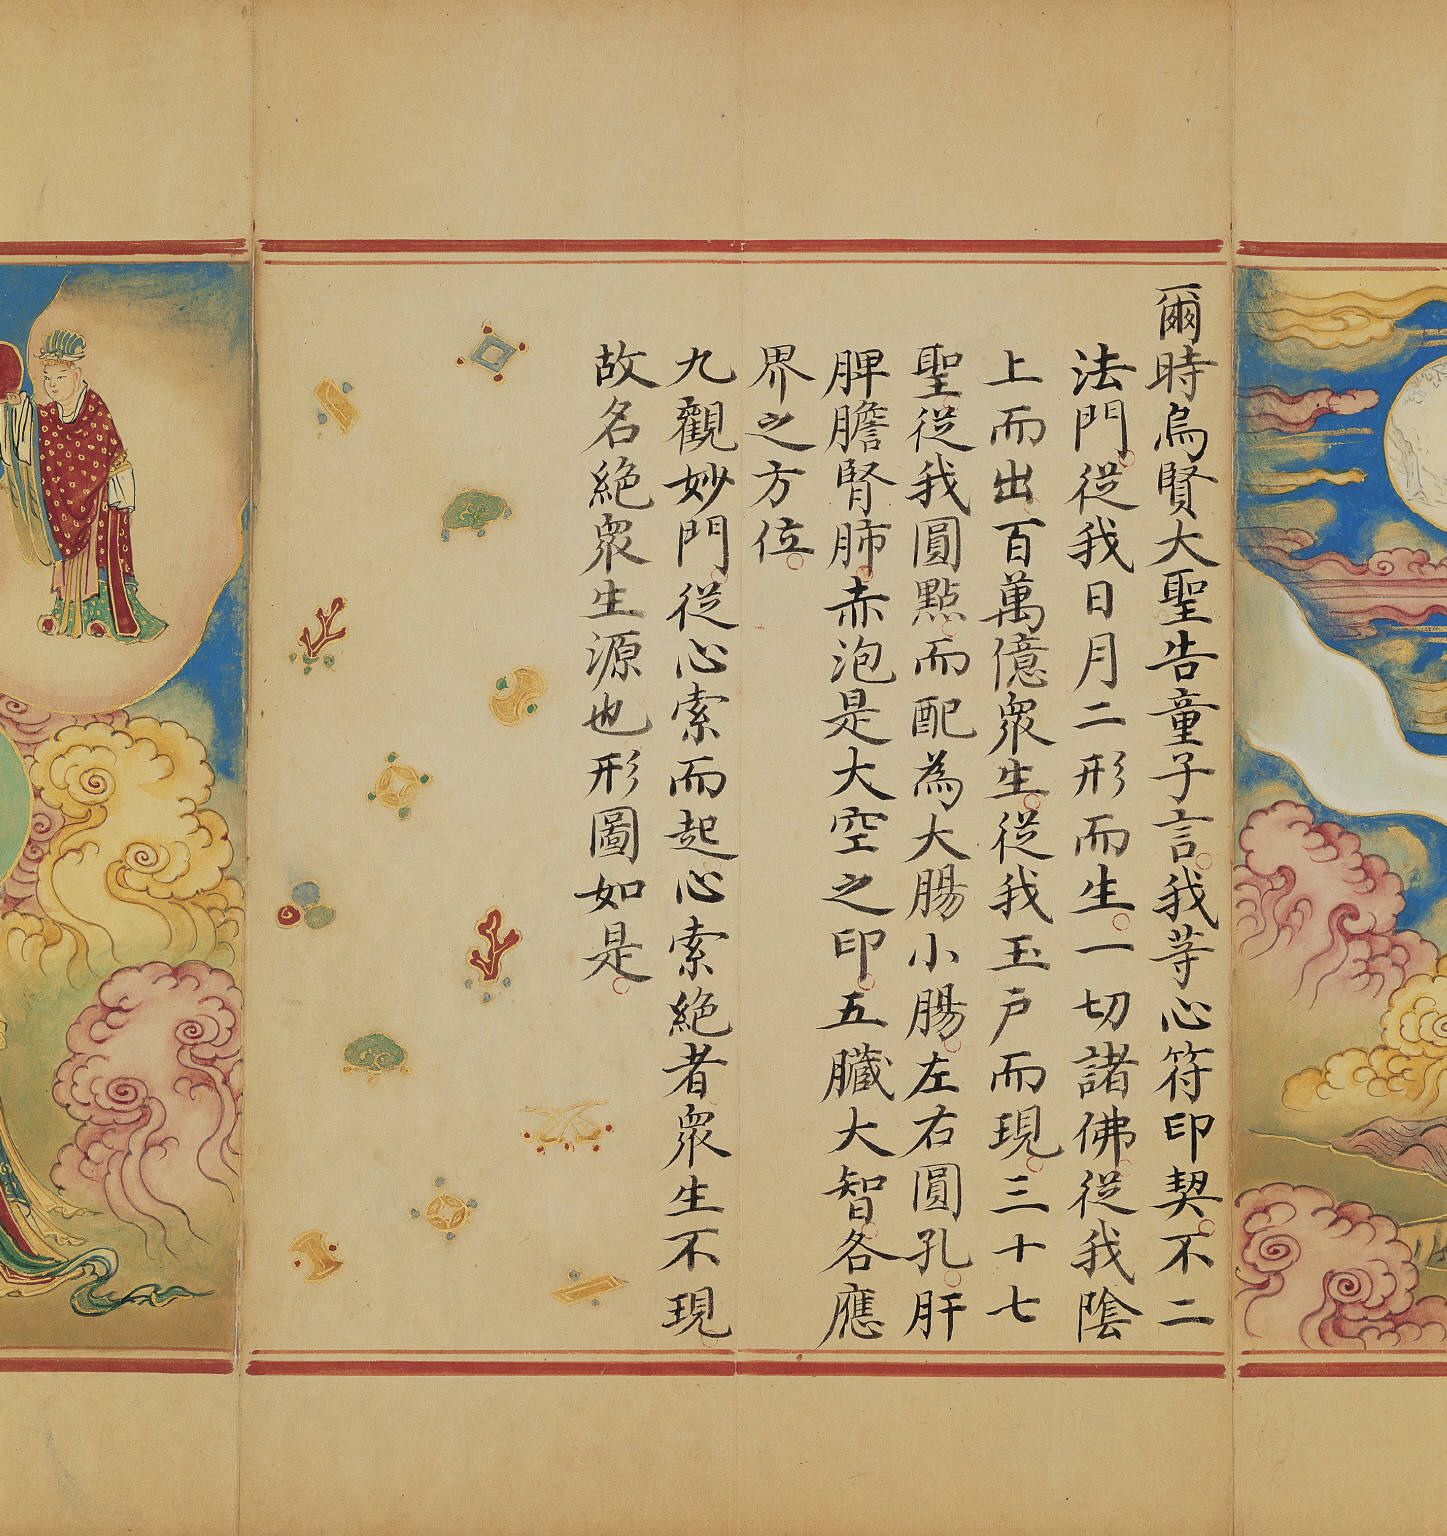 爾時烏賢大聖告童子言我等心符印契不二
法門從我日月二形而生一切諸佛從我陰
上而出百萬億眾生從我玉戶而現三十七
聖從我圓點而配為大腸小腸左右圓孔肝
脾膽腎肺赤泡是大空之印五臟大智各應
界之方位
九觀妙門從心索而起心索絕者眾生不現
故名絕眾生源也形圖如是